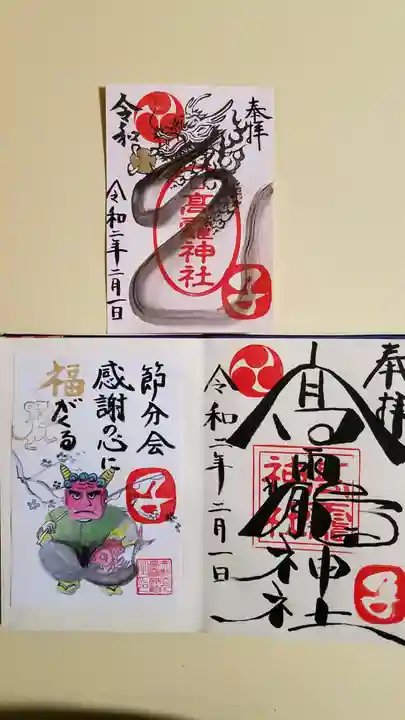 奉拝
令和
高龗神社
令和二年二月一日
子
節分会
感謝の心に
福がくる
子
奉拝
高龗神社
令和二年二月一日
子